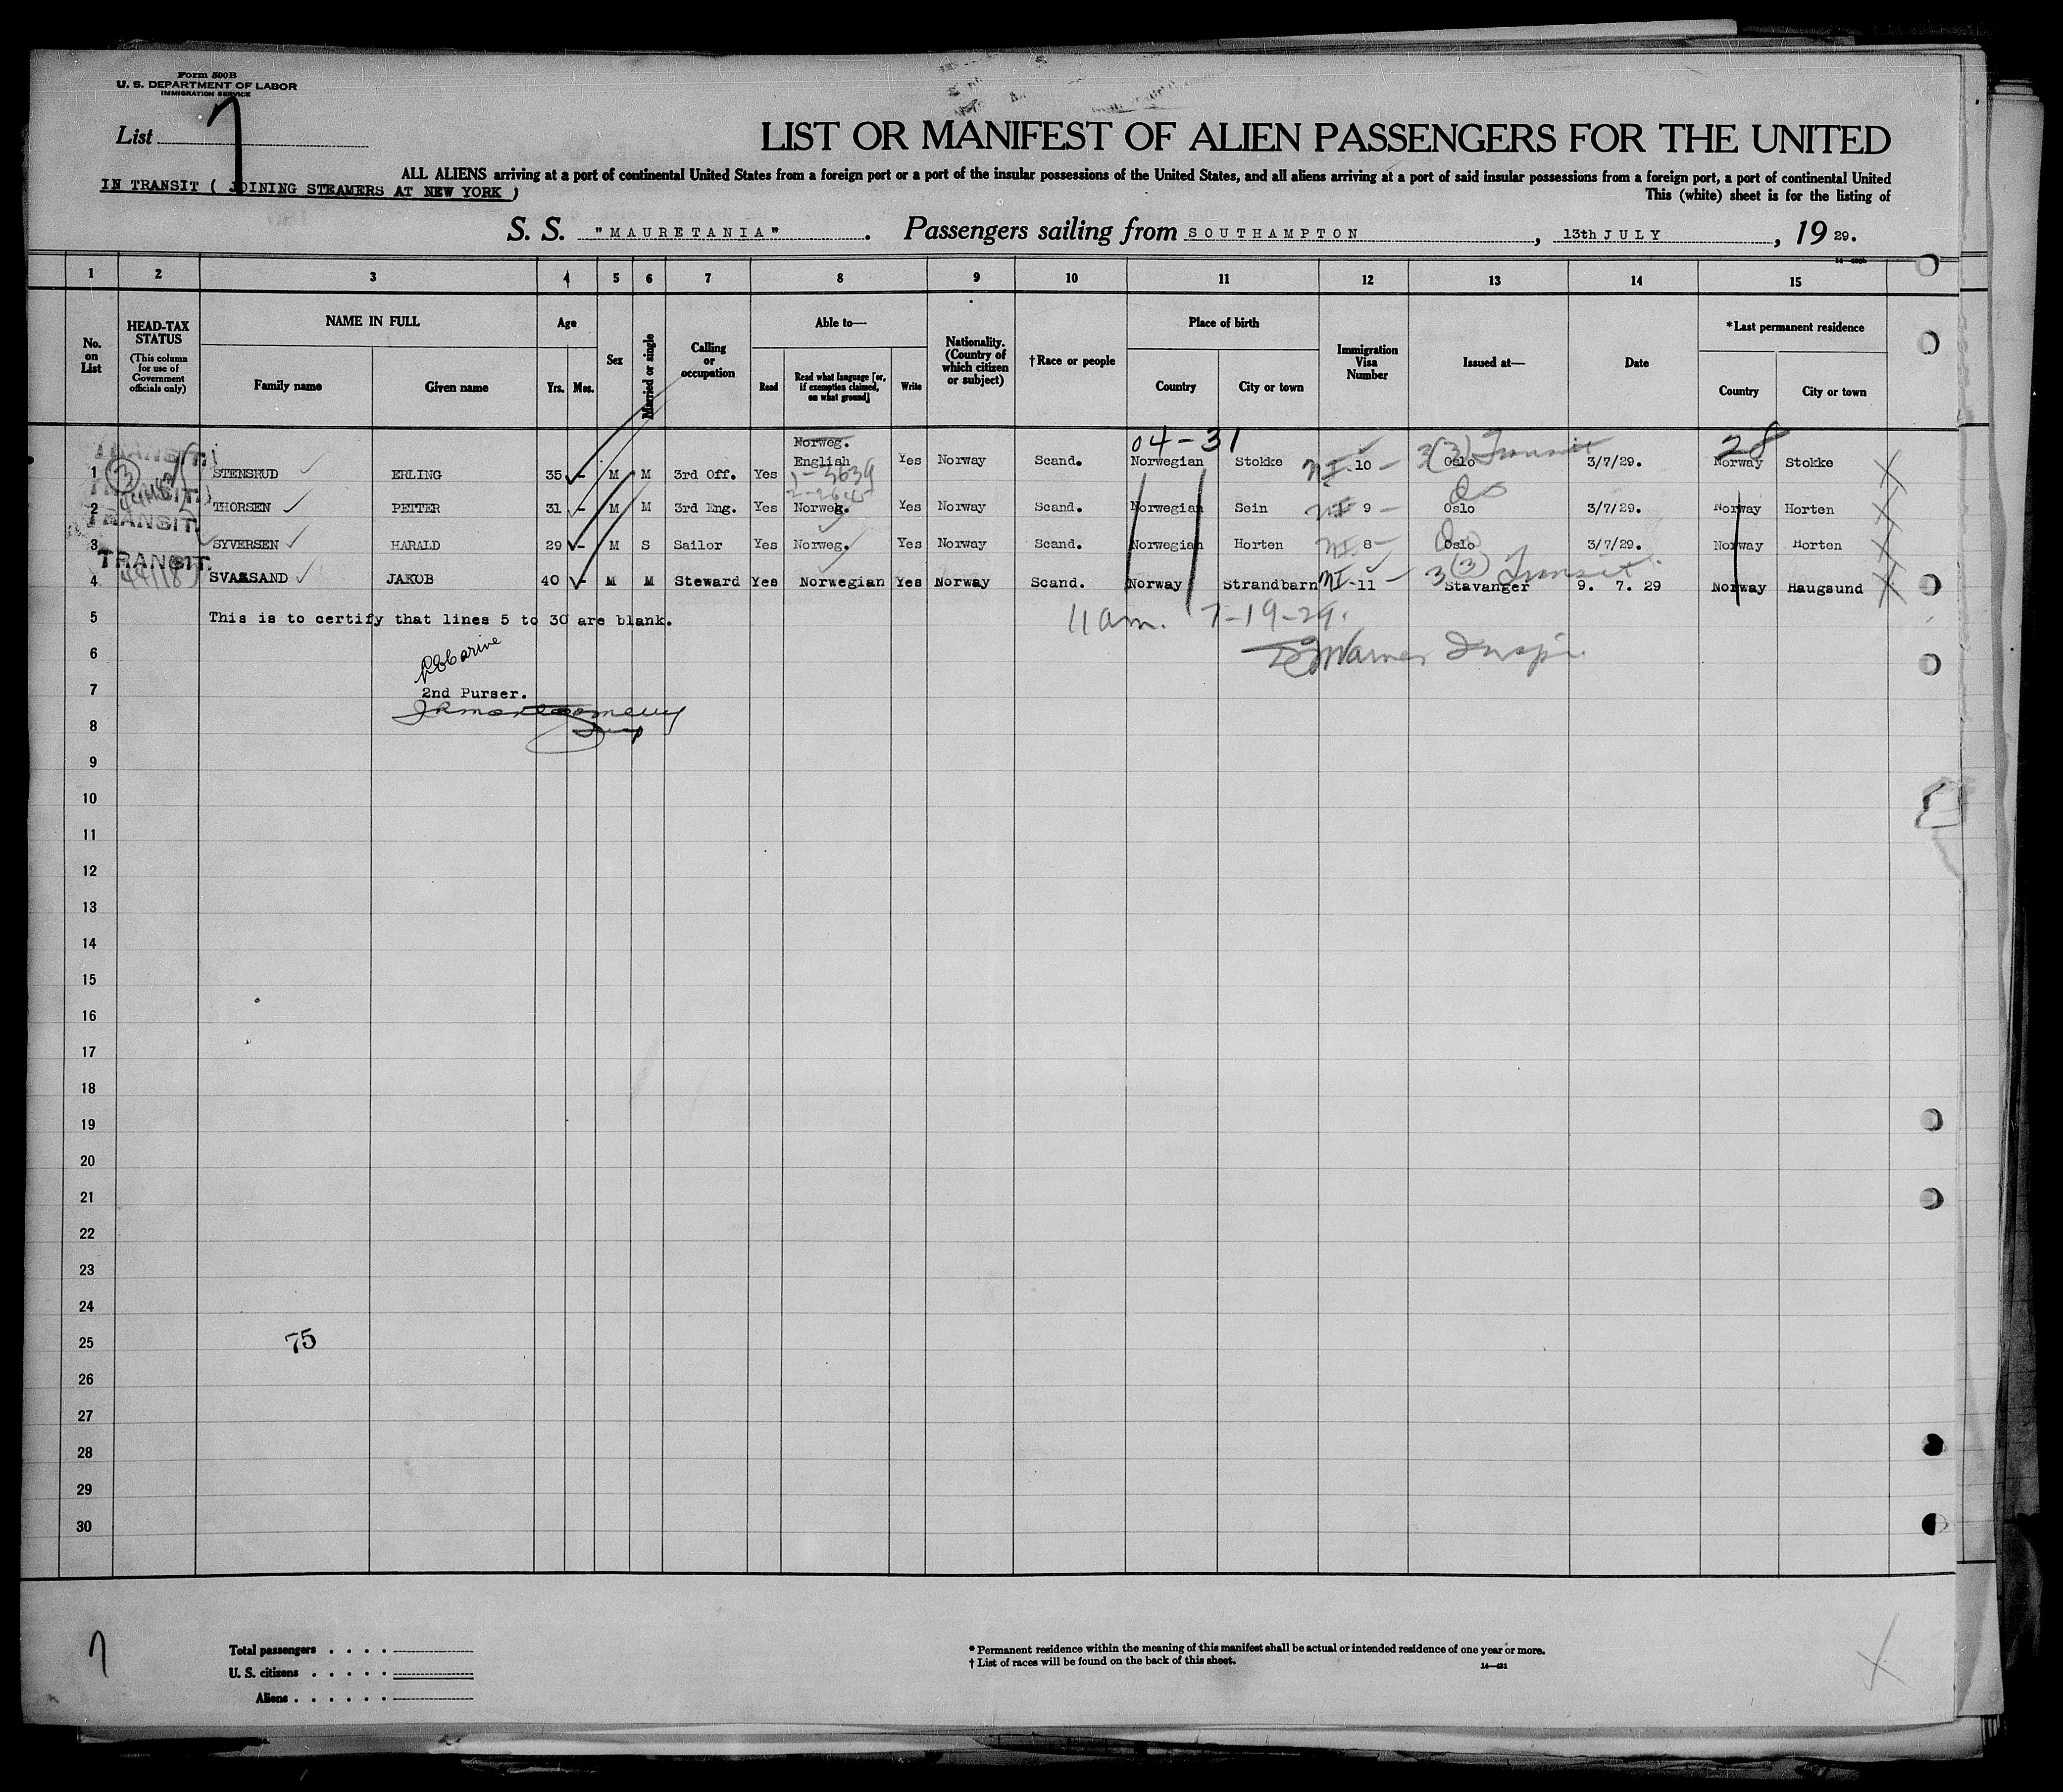 Form 500B
U. S. DEPARTMENT OF LABOR
IMMIGRATION SERVICE
List 7
LIST OR MANIFEST OF ALIEN PASSENGERS FOR THE UNITED
ALL ALIENS arriving at a port of continental United States from a foreign port or a port of the insular possessions of the United States, and all aliens arriving at a port of said insular possessions from a foreign port, a port of continental United
IN TRANSIT ( JOINING STEAMERS AT NEW YORK )
This (white) sheet is for the listing of
S. S. "MAURETANIA". Passengers sailing from SOUTHAMPTON, 13th JULY, 19 29.
1 2 3 4 5 6 7 8 9 10 11 12 13 14 15
No. on List
HEAD-TAX STATUS (This column for use of Government officials only)
NAME IN FULL
Family name Given name
Age
Yrs. Mos.
Sex
Married or single
Calling or occupation
Able to—
Read Read what language [or, if exemption claimed, on what ground] Write
Nationality. (Country of which citizen or subject)
†Race or people
Place of birth
Country City or town
Immigration Visa Number
Issued at—
Date
*Last permanent residence
Country City or town
04-31 28
TRANSIT.
1 STENSRUD ERLING 35 - M M 3rd Off. Yes Norweg. English Yes Norway Scand. Norwegian Stokke 10 - Oslo 3(3) Transit 3/7/29. Norway Stokke
TRANSIT.
2 THORSEN PETTER 31 - M M 3rd Eng. Yes Norweg. Yes Norway Scand. Norwegian Sein 9 - Oslo 3/7/29. Norway Horten
TRANSIT.
3 SYVERSEN HARALD 29 - M S Sailor Yes Norweg. Yes Norway Scand. Norwegian Horten 8 - Oslo 3/7/29. Norway Horten
TRANSIT.
4 SVAASAND JAKOB 40 - M M Steward Yes Norwegian Yes Norway Scand. Norway Strandbarn 11 - Stavanger 3(3) Transit 9. 7. 29 Norway Haugsund
5 This is to certify that lines 5 to 30 are blank. 11 am. 7-19-29.
6
7 2nd Purser.
8
9
10
11
12
13
14
15
16
17
18
19
20
21
22
23
24
25 75
26
27
28
29
30
7
Total passengers
U. S. citizens
Aliens
* Permanent residence within the meaning of this manifest shall be actual or intended residence of one year or more.
† List of races will be found on the back of this sheet.
14—431